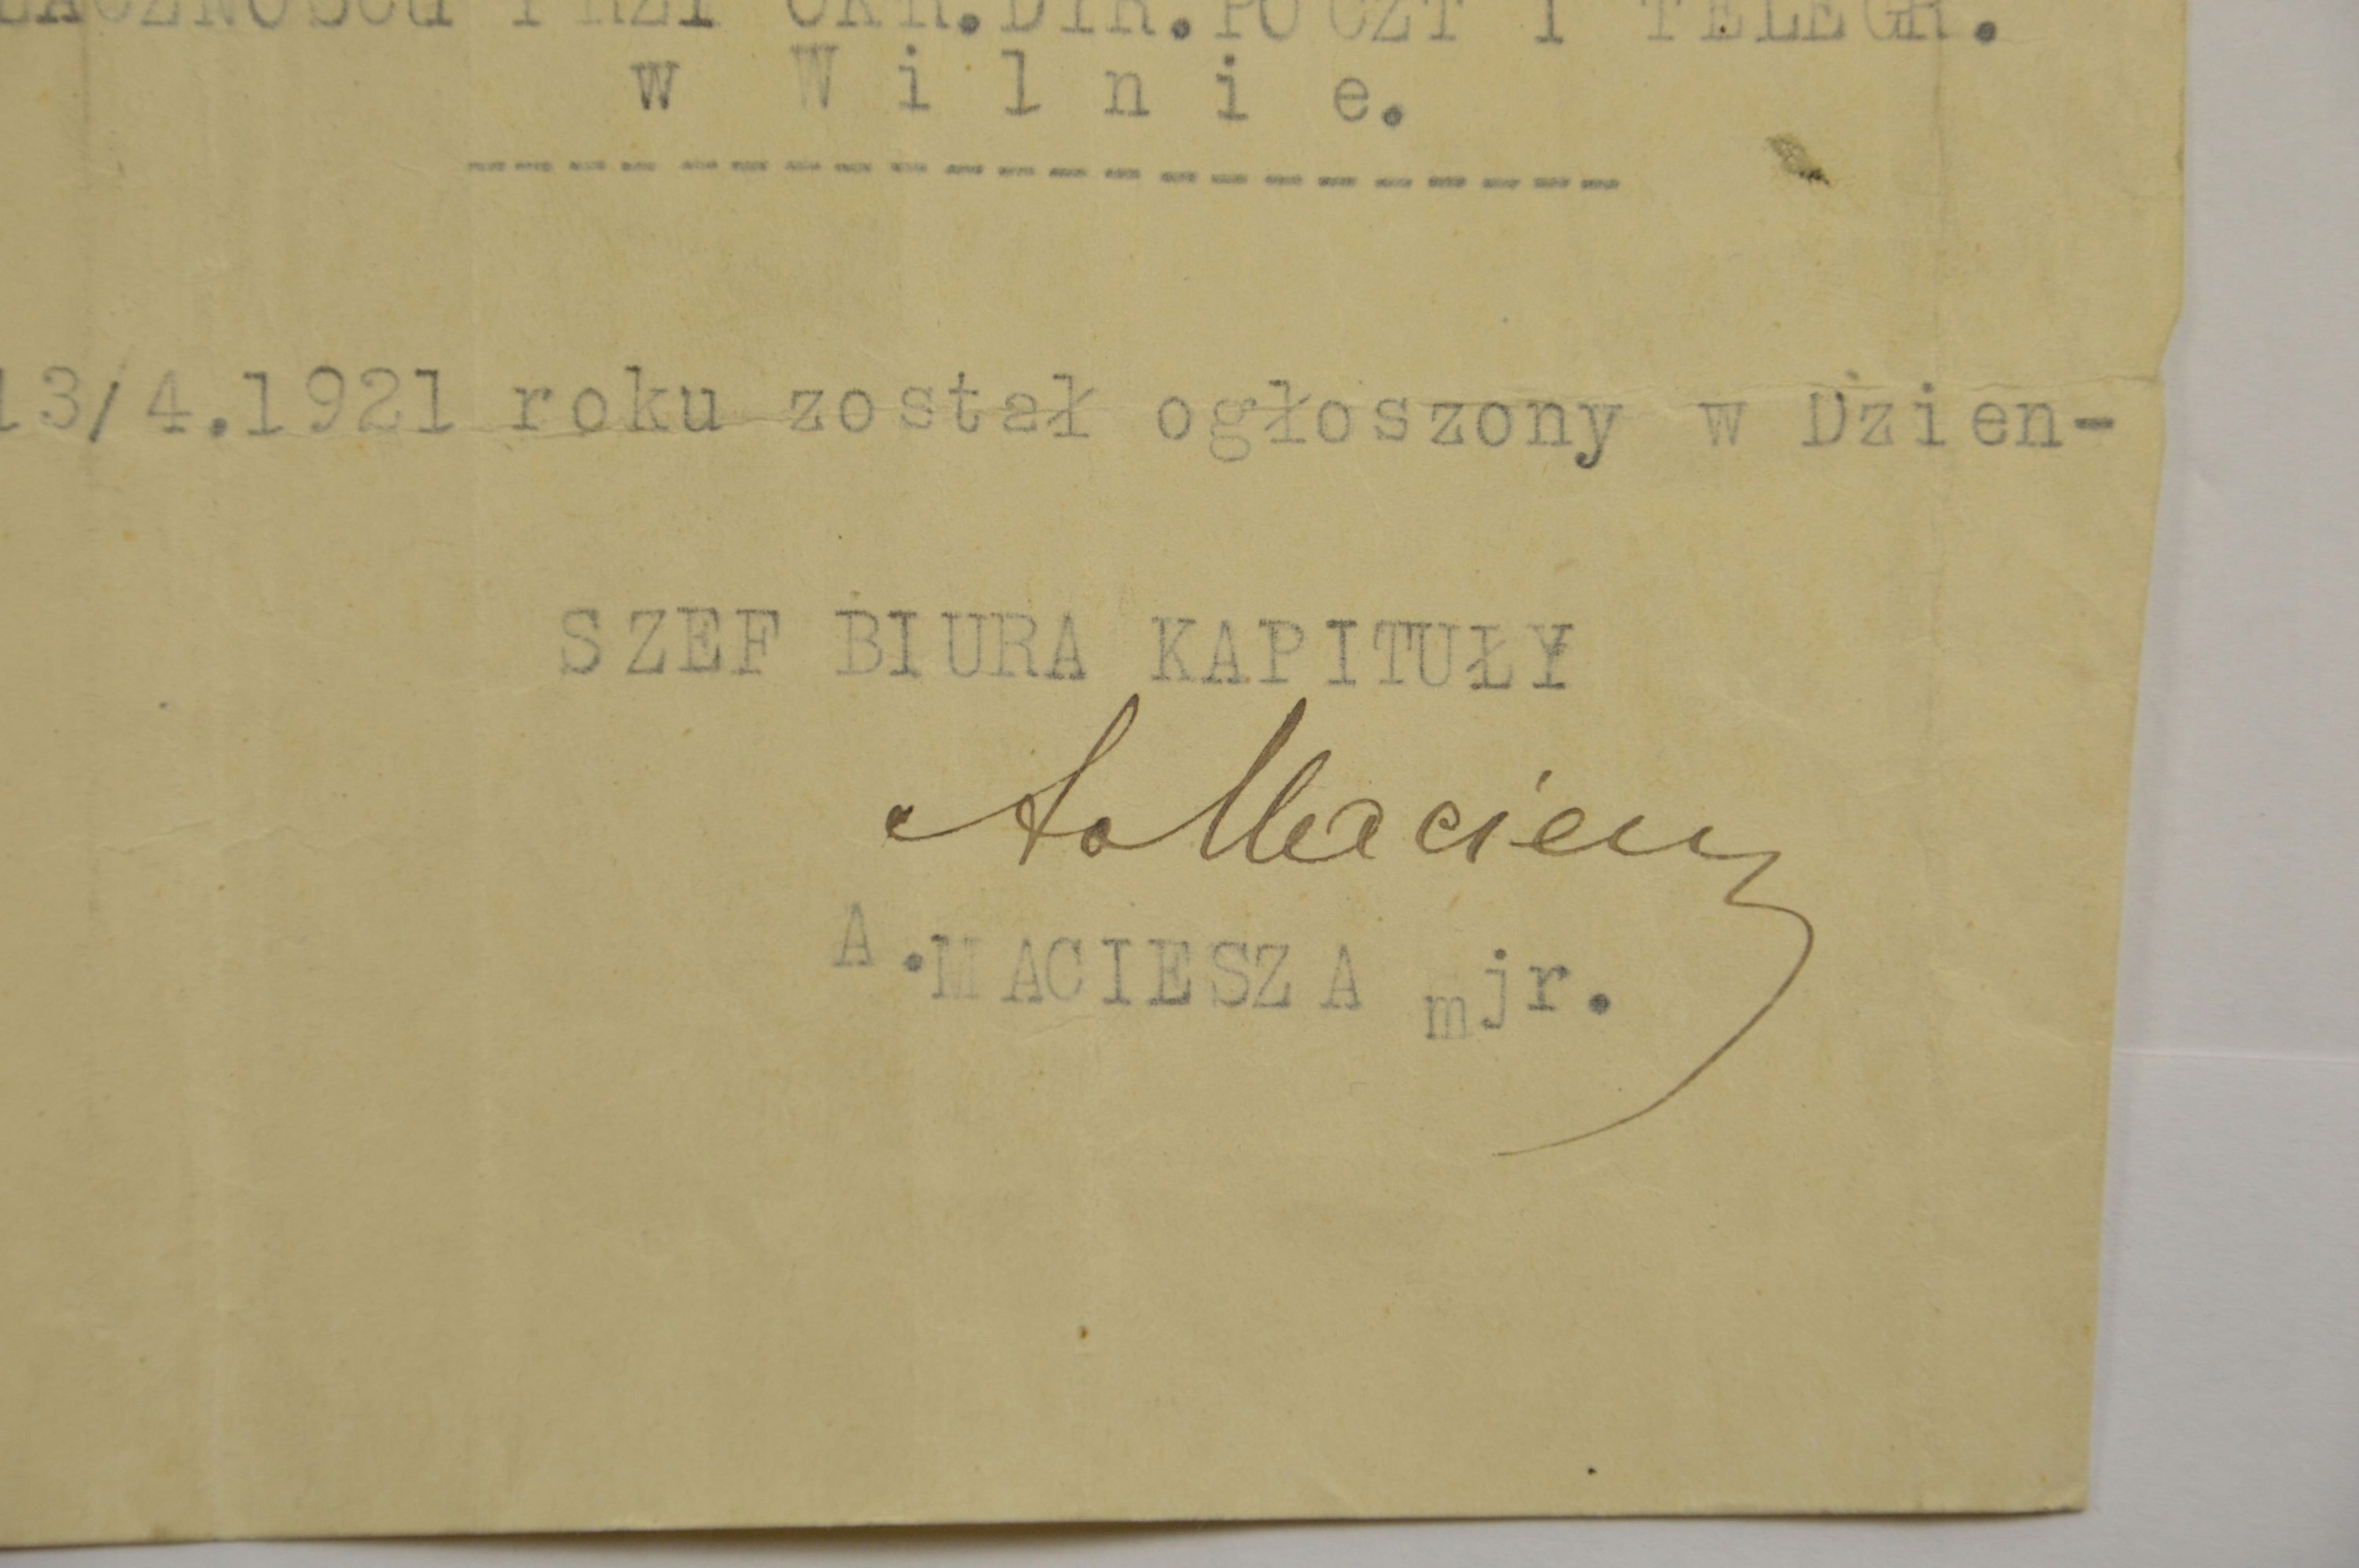 PRZY OKR.DYR.POCZT I TELEGR.
w W i l n i e.
----------------------
13/4.1921 roku został ogłoszony w Dzien-
SZEF BIURA KAPITUŁY
A. Maciesz
A.MACIESZA mjr.